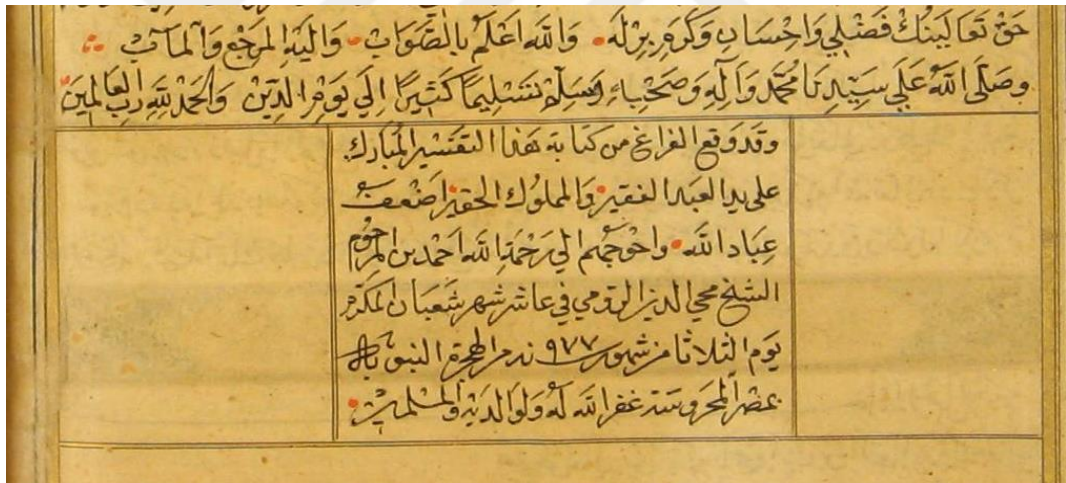 حق تعالینك فضلي واحسان وكرمي بزله والله اعلم بالصواب واليه المرجع والمآب
وصلى الله على سيدنا محمد وآله وصحبه وسلم تسليما كثيرا الي يوم الدين والحمد لله رب العالمين
وقد وقع الفراغ من كتابة هذا التفسير المبارك
على يد العبد الفقير والمملوك الحقير اضعف
عباد الله واحوجهم الي رحمة الله احمد بن المرحوم
الشيخ محي الدين الرومي في عاشر شهر شعبان المكرم
يوم الثلاثا من شهور سنة ٩٧٧ الهجرة النبوية
بمصر المحروسة غفر الله له ولوالديه والمسلمين